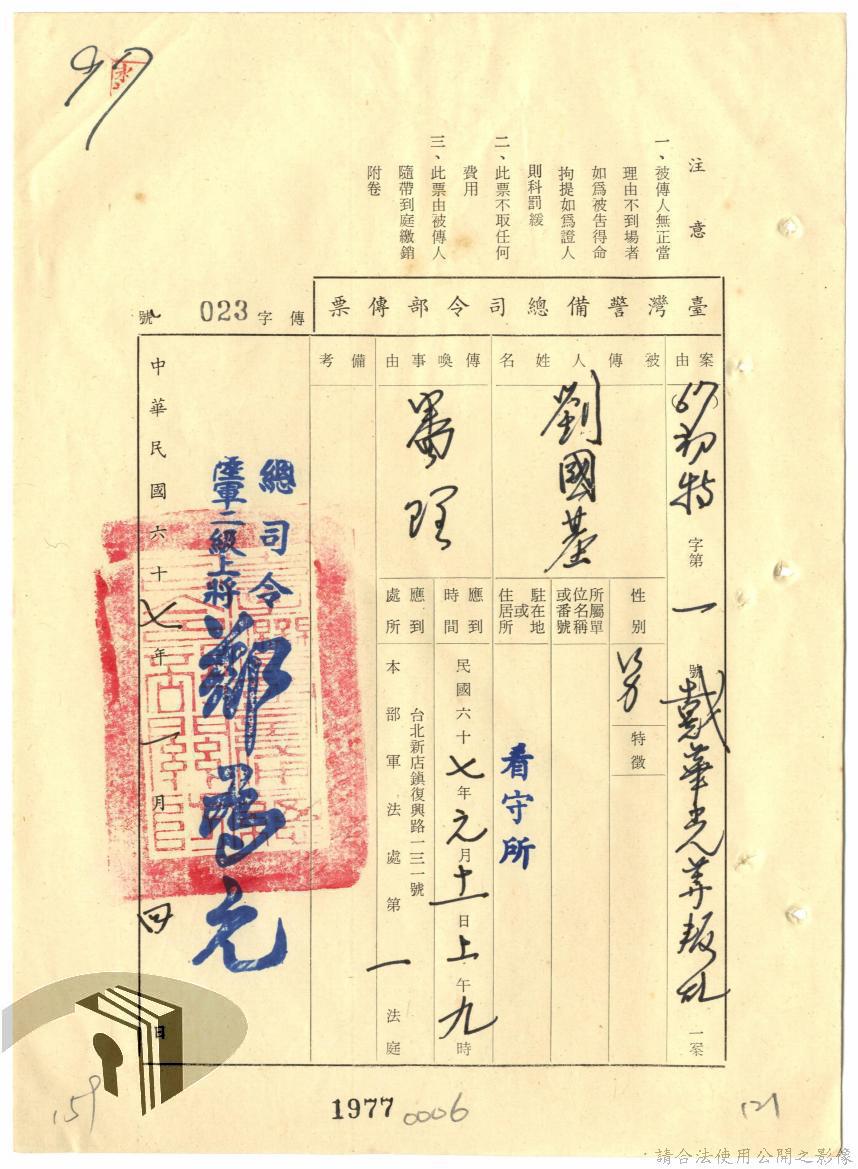 97
永
注意
一、被傳人無正當
理由不到場者
如為被告得命
拘提如為證人
則科罰鍰
二、此票不取任何
費用
三、此票由被傳人
隨帶到庭繳銷
附卷
臺灣警備總司令部傳票
傳字 023 號
案由
(67)初特字第一號戴華光等叛亂一案
被傳人姓名
劉國基
性別
男
特徵
所屬單
位名稱
或番號
駐在地
或
住居所
看守所
傳喚事由
審理
應到
時間
民國六十七年元月十一日上午九時
應到
處所
台北新店鎮復興路一三一號
本部軍法處第一法庭
備考
總司令
陸軍二級上將 鄭為元
中華民國六十七年一月四日
1977
0006
159
121
請合法使用公開之影像